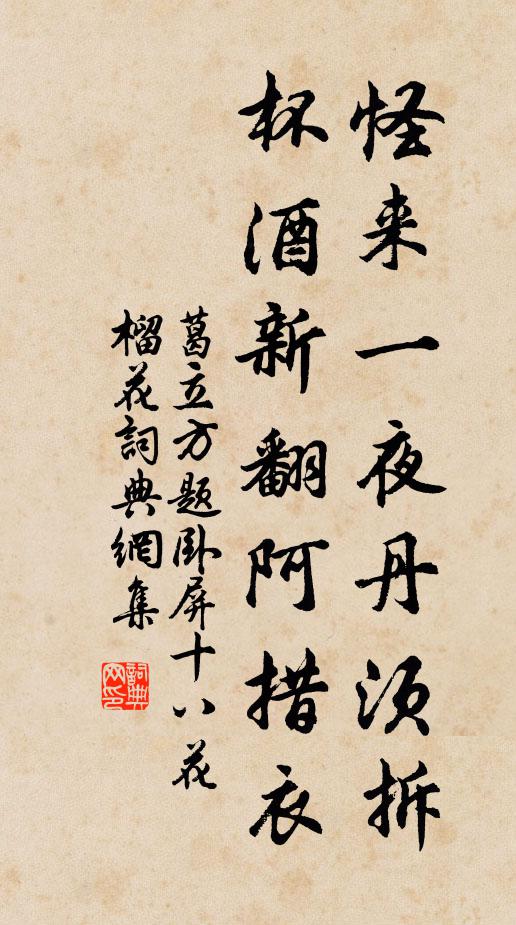 怪来一夜丹须拆
杯酒新翻阿措衣
葛立方题卧屏十八花
榴花詞典網集
詞典网印